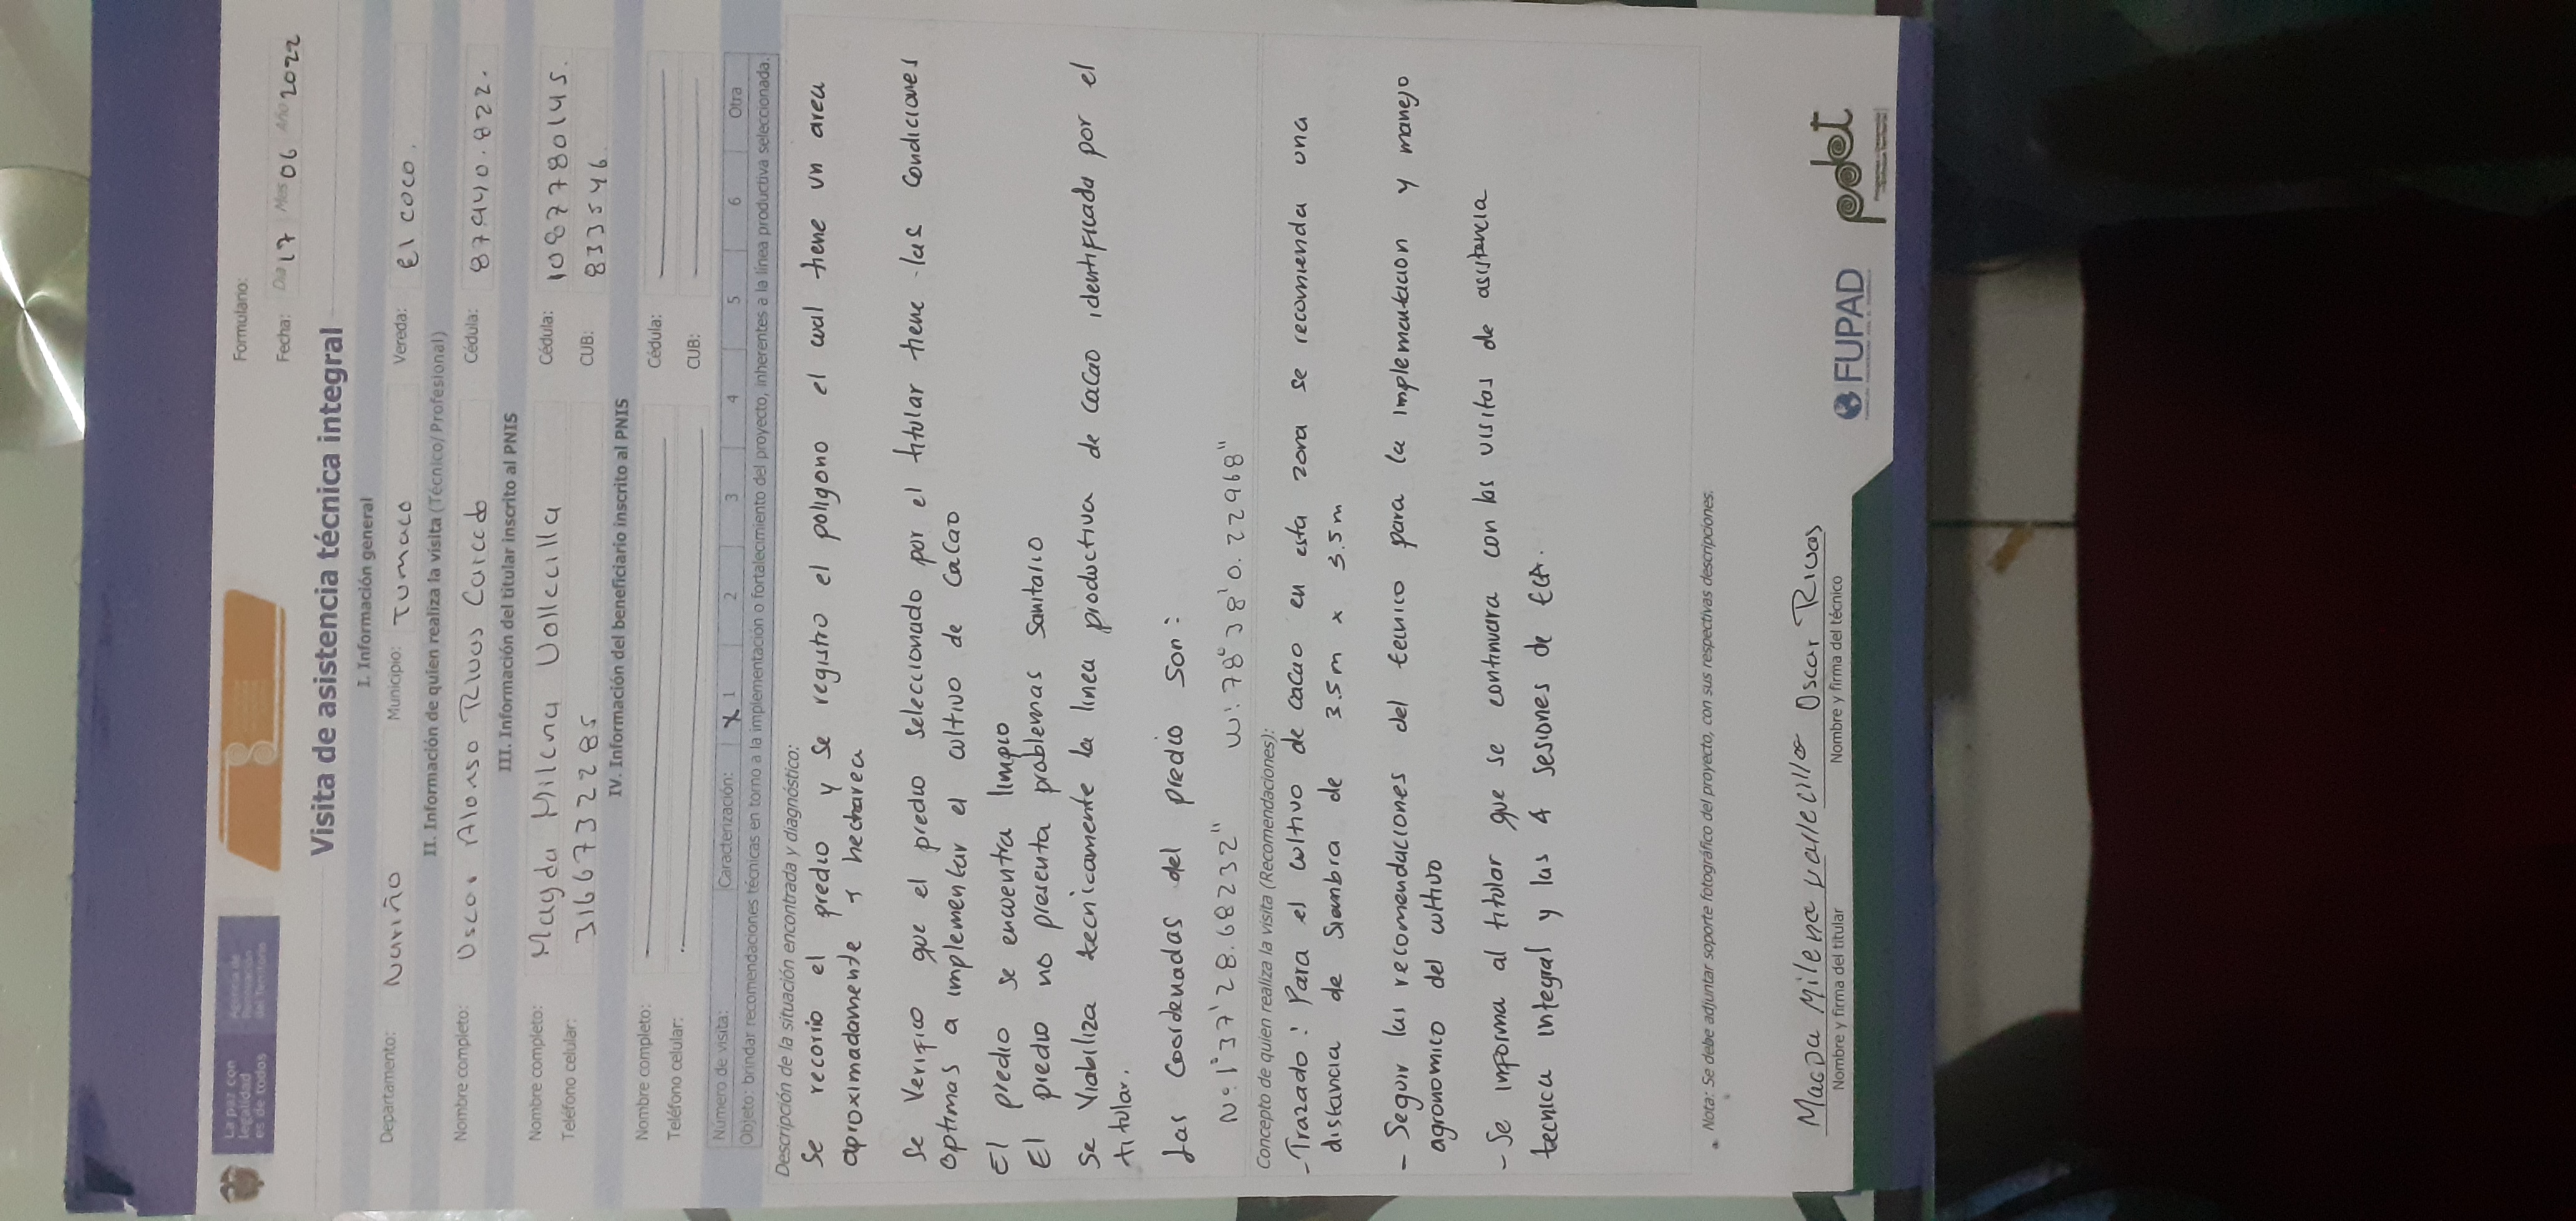 La paz con
legalidad
es de todos
Agencia de
Renovación
del Territorio
Formulario:
Fecha: Día 17 Mes 06 Año 2022
Visita de asistencia técnica integral
I. Información general
Departamento: Nariño Municipio: Tumaco Vereda: El coco.
II. Información de quien realiza la visita (Técnico/Profesional)
Nombre completo: Oscar Alonso Rivas Caicedo Cédula: 87940.822.
III. Información del titular inscrito al PNIS
Nombre completo: Magda Milena Vallecilla Cédula: 1087780145.
Teléfono celular: 3166732285 CUB: 833546
IV. Información del beneficiario inscrito al PNIS
Nombre completo: Cédula:
Teléfono celular: CUB:
Número de visita: Caracterización: X 1 2 3 4 5 6 Otra
Objeto: brindar recomendaciones técnicas en torno a la implementación o fortalecimiento del proyecto, inherentes a la línea productiva seleccionada.
Descripción de la situación encontrada y diagnóstico:
Se recorrio el predio y se registro el poligono el cual tiene un area
aproximadamente 1 hectarea
Se Verifico que el predio seleccionado por el titular tiene las condiciones
optimas a implementar el cultivo de cacao
El predio se encuentra limpio
El predio no presenta problemas sanitario
Se Viabiliza tecnicamente la linea productiva de cacao identificada por el
titular.
Las Coordenadas del predio son:
N: 1°37'28.68232" W: 78°38'0.22968"
Concepto de quien realiza la visita (Recomendaciones):
-Trazado: Para el cultivo de cacao en esta zona se recomienda una
distancia de Siembra de 3.5m x 3.5m
- Seguir las recomendaciones del tecnico para la implementacion y manejo
agronomico del cultivo
- Se informa al titular que se continuara con las visitas de asistencia
tecnica integral y las 4 sesiones de ECA.
• Nota: Se debe adjuntar soporte fotográfico del proyecto, con sus respectivas descripciones.
Magda Milena Vallecilla Oscar Rivas
Nombre y firma del titular Nombre y firma del técnico
FUPAD pdet